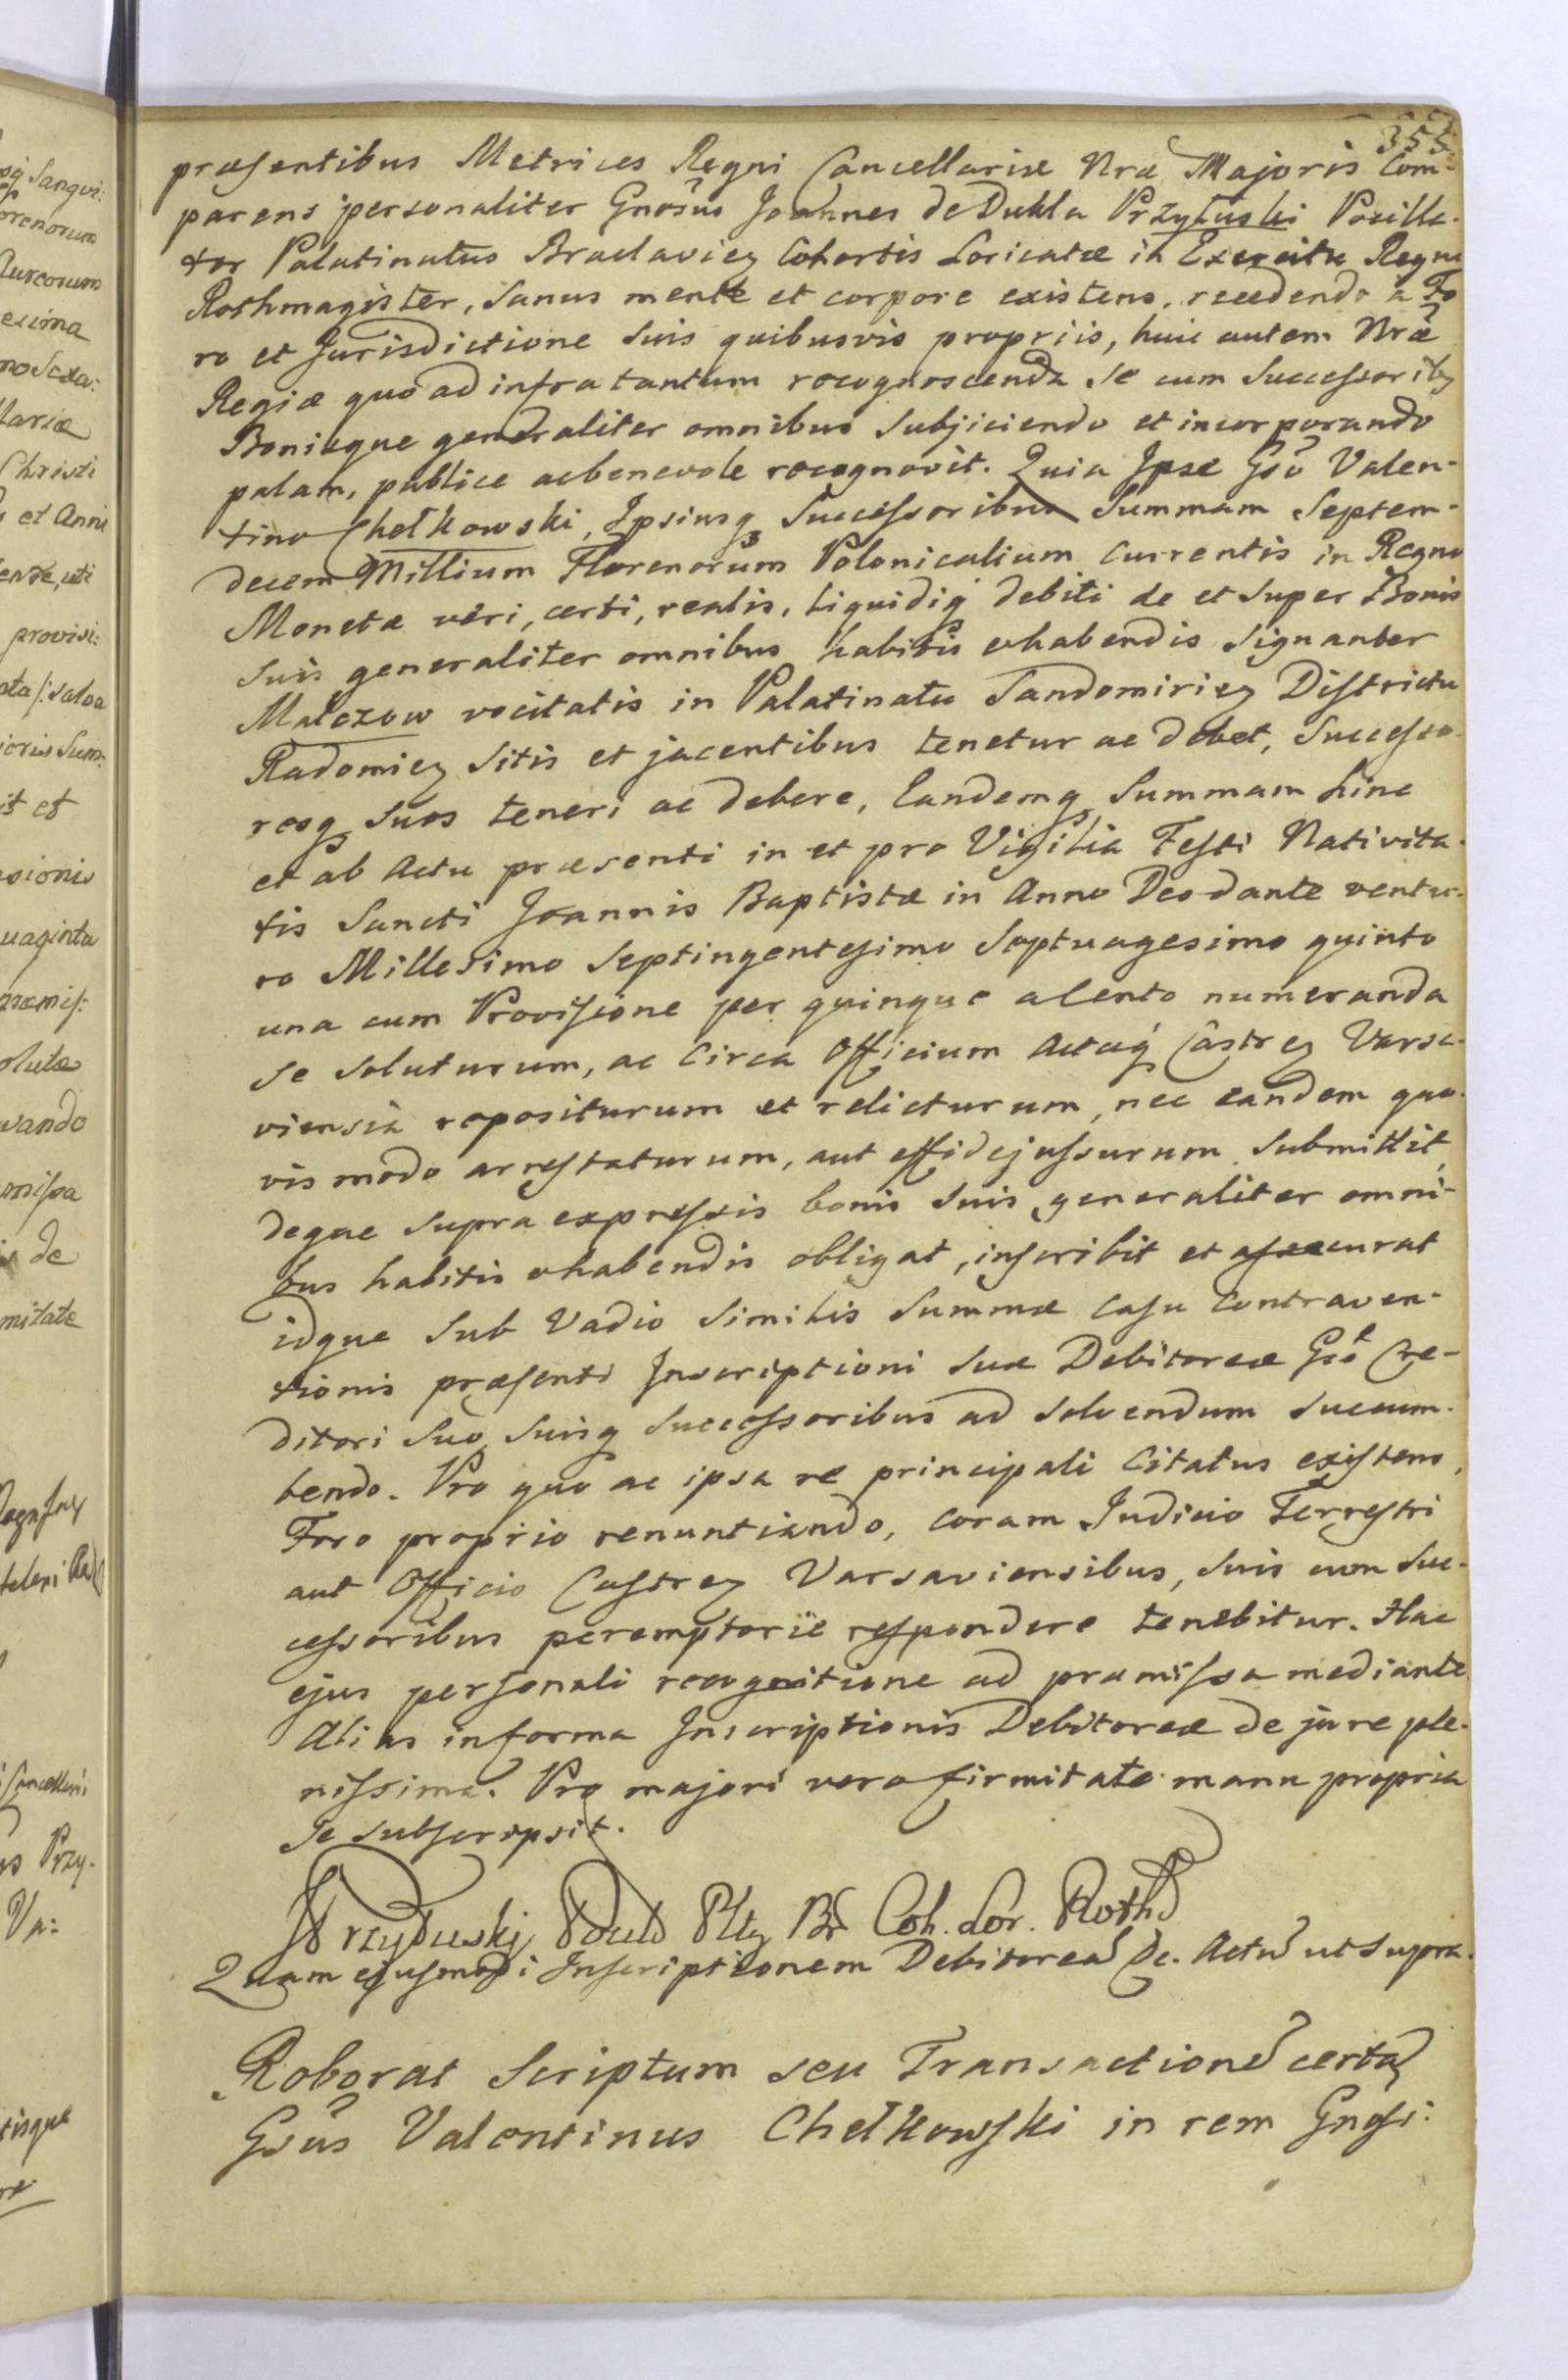 355
præsentibus Metrices Regni Cancellariæ Nræ Majoris Com-
parens personaliter Gnosus Joannes de Dukla Przyłuski Pocilla-
tor Palatinatus Braclavien Cohortis Loricatæ in Exercitu Regni
Rothmagister, Sanus mente et corpore existens, recedendo a Fo
ro et Jurisdictione suis quibusvis propriis, huic autem Nræ
Regiæ quo ad infra tantum recognoscenda Se cum Successoribq
Bonisque generaliter omnibus Subjiciendo et incorporando
palam, publice ac benevole recognovit. Quia Ipse Gso Valen-
tino Chełkowski, Ipsiusq Successoribus Summam Septem-
decem Millium Florenorum Polonicalium Currentis in Regno
Monetæ veri, certi, realis, liquidiq debiti de et Super Bonis
Suis generaliter omnibus habitis et habendis Signanter
Małczow vocitatis in Palatinatu Sandomirien Districtu
Radomien Sitis et jacentibus tenetur ac debet, Successo
resq Suos teneri ac debere, Eandemq Summam hinc
et ab Actu præsenti in et pro Vigilia Festi Nativita-
tis Sancti Joannis Baptistæ in Anno Deo dante ventu-
ro Millesimo Septingentesimo Septuagesimo quinto
una cum Provisione per quinque a Cento numeranda
Se Soluturum, ac Circa Officium Actaq Castren Varsa-
viensia repositurum et relicturum, nec eandem quo-
vis modo arrestaturum, aut effidejussurum Submittit,
deque Supra expressis bonis Suis generaliter omni-
bus habitis et habendis obligat, inscribit et assecurat
idque Sub Vadio Similis Summæ Casu Contraven-
tionis præsenti Inscriptioni Suæ Debitoreæ Gso Cre-
ditori Suo, Suisq Successoribus ad Solvendum Succum-
bendo. Pro quo ac ipsa re principali Citatus existens,
Foro proprio renuntiando, coram Judicio Terrestri
aut Officio Castren Varsaviensibus, Suis cum Suc-
cessoribus peremptorie respondere tenebitur. Hac
ejus personali recognitione ad præmissa mediante
Alias in forma Inscriptionis Debitoreæ de jure ple-
nissima. Pro majori vero firmitate manu propria
Se Subscripsit.
Przyłuski Br Coh. Lor. Roth
Quam ejusmodi Inscriptionem Debitorea &c. Actu ut Supra.
Roborat Scriptum seu Transactione certa
Gsus Valentinus Chełkowski in rem Gnosi: